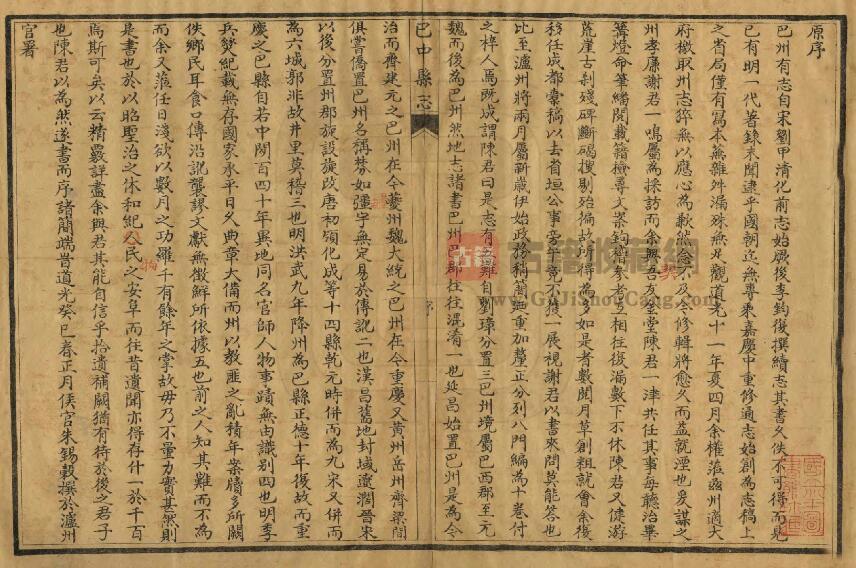 原序
巴州有志自宋劉甲清化前志始厥後李鈞復撰續志其書久佚不可得而見
已有明一代著錄未聞逮乎國朝迄無專乘嘉慶中重修通志始創為志稿上
之省局僅有寫本蕪雜舛漏殊無足觀道光十一年夏四月余權蒞茲州適大
府檄取州志猝無以應心為歉然念不及今修輯將愈久而益就湮也爰謀之
州孝廉謝君一鳴屬為採訪而余與吾友星堂陳君一津共任其事每聽治畢
篝燈命筆繙閱載籍檢尋文案鉤稽參考互相往復漏數下不休陳君又健游
荒崖古刹殘碑斷碣搜剔殆徧故所得為多如是者數閱月草創粗就會余復
移任成都橐稿以去省垣公事旁午竟不獲一展視謝君以書來問莫能答也
比至瀘州將兩月屬新歲伊始政務稍簡迺重加釐正分列八門編為十卷付
之梓人焉既成謂陳君曰是志有難自劉璋分置三巴州境屬巴西郡至元
魏而後為巴州然地志諸書巴州巴郡往往混淆一也延昌始置巴州是為今
巴中縣志
序
治而齊建元之巴州在今夔州魏大統之巴州在今重慶又黃州岳州齊梁間
俱嘗僑置巴州名稱棼如疆字無定易於傳訛二也漢昌舊地封域遼濶晉宋
以後分置州郡旋設旋改唐初領化成等十四縣乾元時併而為九宋又併而
為六城郭非故井里莫稽三也明洪武九年降州為巴縣正德十年復故而重
慶之巴縣自若中閱百四十年異地同名官師人物事蹟無由識別四也明季
兵燹紀載無存國家承平日久典章大備而州以教匪之亂積年案牘多所闕
佚鄉民耳食口傳沿訛襲謬文獻無徵鮮所依據五也前之人知其難而不為
而余又蒞任日淺欲以數月之功離千有餘年之掌故毋乃不量力實甚然則
是書也於以昭聖治之休和紀人民之安阜而往昔遺聞亦得存什一於千百
焉斯可矣以云精覈詳盡余與君其能自信乎拾遺補闕猶有待於後之君子
也陳君以為然遂書而序諸簡端旹道光癸巳春正月侯官朱錫穀撰於瀘州
官署
古籍
古籍收藏网
www.GuJiShouCang.com